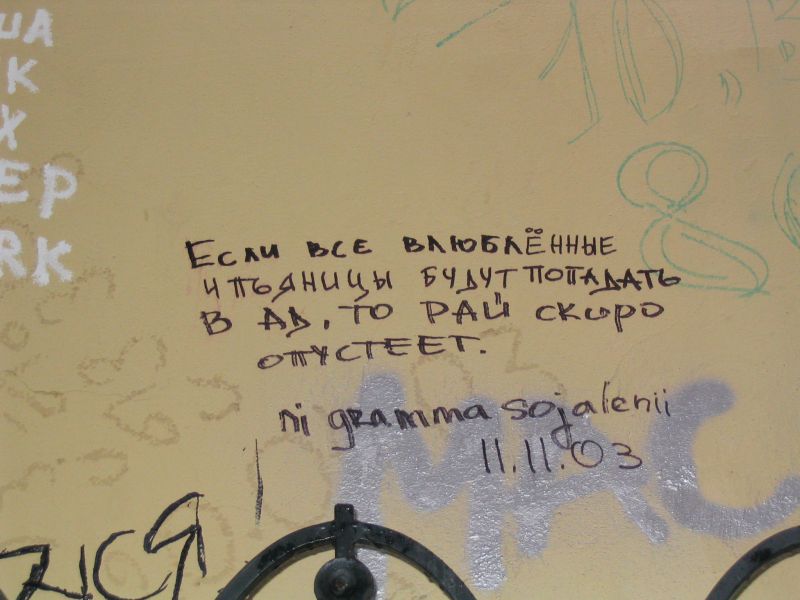 ША
К
Х
ЕР
RK
10
8
Если все влюблённые
и пьяницы будут попадать
в ад, то рай скоро
опустеет.
ni gramma sojalenii
11.11.03
МАС